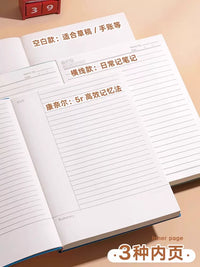 39
空白款：适合草稿/手账等
横线款：日常记笔记
康奈尔：5r高效记忆法
inner page
3种内页